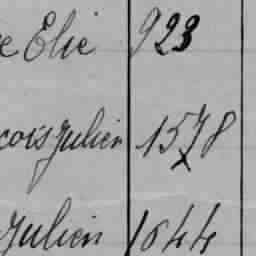 e Elie 923
cois Julien 1578
Julien 1644